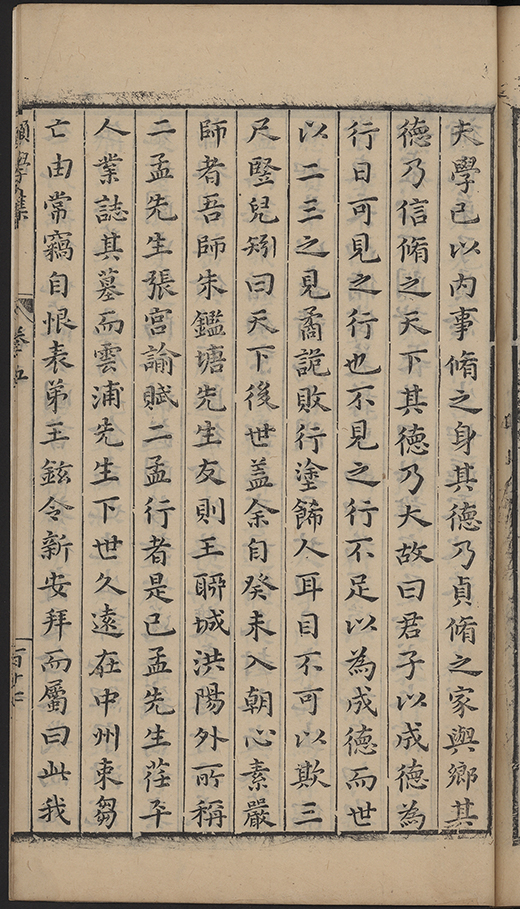 夫學己以内事脩之身其德乃貞脩之家與鄉其
德乃信脩之天下其德乃大故曰君子以成德為
行日可見之行也不見之行不足以為成德而世
以二三之見矞詭敗行塗飾人耳目不可以欺三
尺竪兒矧曰天下後世盖余自癸未入朝心素嚴
師者吾師朱鑑塘先生友則王聊城洪陽外所稱
二孟先生張宮諭賦二孟行者是已孟先生荏平
人業誌其墓而雲浦先生下世久遠在中州束芻
亡由常竊自恨表弟王鉉令新安拜而屬曰此我
學集
卷五